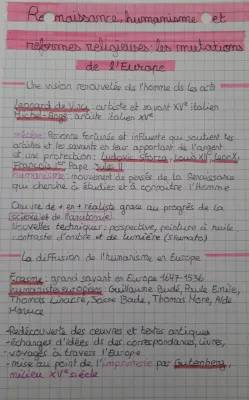 Renaissance, humanisme et
réformes religieuses: les mutations
de l'Europe
Une vision renouvelée de l'homme ds les arts
Leonard de Vinci: artiste et savant XVe italien
Michel-Ange: artiste italien XVe
mécène: Personne fortunée et influente qui soutient les
artistes et les savants en leur apportant de l'argent
et une protection: Ludovic Sforza, Louis XII, Léon X,
François 1er, Pape Jules II
humanisme: mouvement de pensée de la Renaissance
qui cherche à étudier et à connaitre l'Homme
Oeuvre de + en + réaliste grace au progrès de la
science et de l'anatomie.
Nouvelles techniques: perspective, peinture à huile
contraste d'ombre et de lumière (sfumato)
La diffusion de l'humanisme en Europe
Erasme: grand savant en Europe 1536
humanistes européens: Guillaume Budé, Paule Emile,
Thomas Linacre, Josse Bade, Thomas More, Alde
Manuce
-Redécouverte des oeuvres et textes antiques
-échanges d'idées ds des correspondances, livres,
voyages à travers l'Europe
-mise au point de l'imprimerie par Gutenberg,
milieu XVe siècle